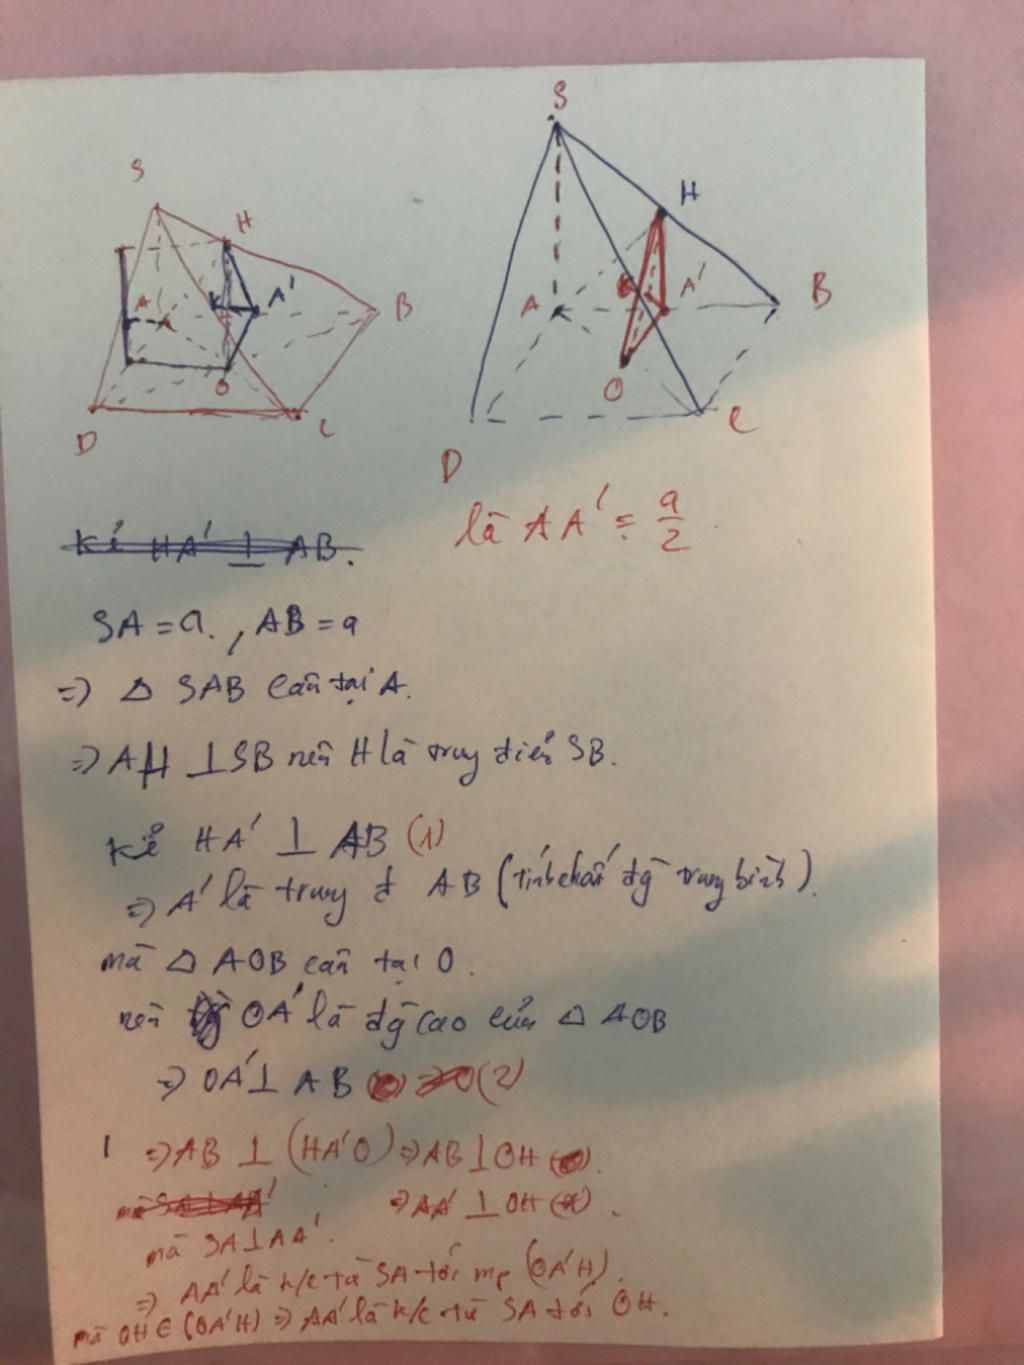 S
H
A
K
A'
B
O
D
C
S
H
A
K
A'
B
O
D
C
là AA' = a/2
Kẻ HA' ⊥ AB.
SA = a. , AB = a
=> Δ SAB cân tại A.
=> AH ⊥ SB nên H là trung điểm SB.
Kẻ HA' ⊥ AB (1)
=> A' là trung đ AB (tính chất đg trung bình).
mà Δ AOB cân tại O.
nên OA' là đg cao của Δ AOB
=> OA' ⊥ AB (2)
=> AB ⊥ (HA'O) => AB ⊥ OH
=> AA' ⊥ OH
mà SA ⊥ AA'.
=> AA' là k/c từ SA tới mp (OA'H).
mà OH ∈ (OA'H) => AA' là k/c từ SA tới OH.